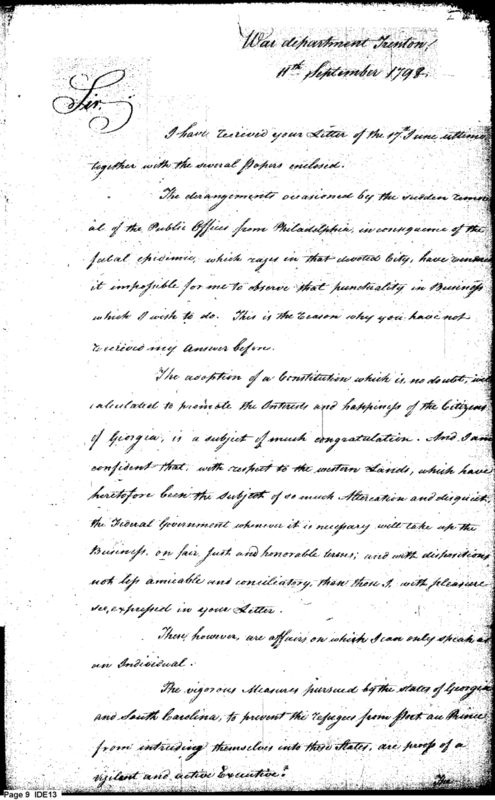 War department Trenton,
11th September 1798.
Sir.
I have received your Letter of the 17th June ultimo
together with the several Papers enclosed.
The derangements occasioned by the sudden remov-
al of the Public Offices from Philadelphia, in consequence of the
fatal epidemic, which rages in that devoted City, have rendered
it impossible for me to observe that punctuality in Business
which I wish to do. This is the reason why you have not
received my answer before.
The adoption of a Constitution which is, no doubt, well
calculated to promote the Interests and happiness of the Citizens
of Georgia, is a subject of much congratulation. And I am
confident that, with respect to the western Lands, which have
heretofore been the subject of so much Altercation and disquiet,
the Federal Government whenever it is necessary will take up the
Business, on fair, just and honorable terms; and with dispositions
not less amicable and conciliatory, than those I, with pleasure
see, expressed in your Letter.
These, however, are affairs on which I can only speak as
an Individual.
The vigorous Measures pursued by the states of Georgia
and South Carolina, to prevent the refugees from Port au Prince
from intruding themselves into those States, are proofs of a
vigilant and active Executive.
The
Page 9 IDE13